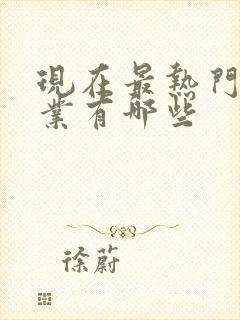 現在最熱門
業有哪些
徐蔚